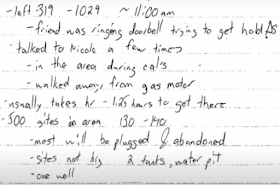 -left 319 - 1029 ~ 11:00am
-friend was ringing doorbell trying to get hold
-talked to Nicole a few times
-in the area during call's
-walked away from gas motor
-usually takes hr - 1.25 hours to get there
-500 sites in area 130 - 140
-most will be plugged & abandoned
-sites not big 2 tanks, water pit
-one well